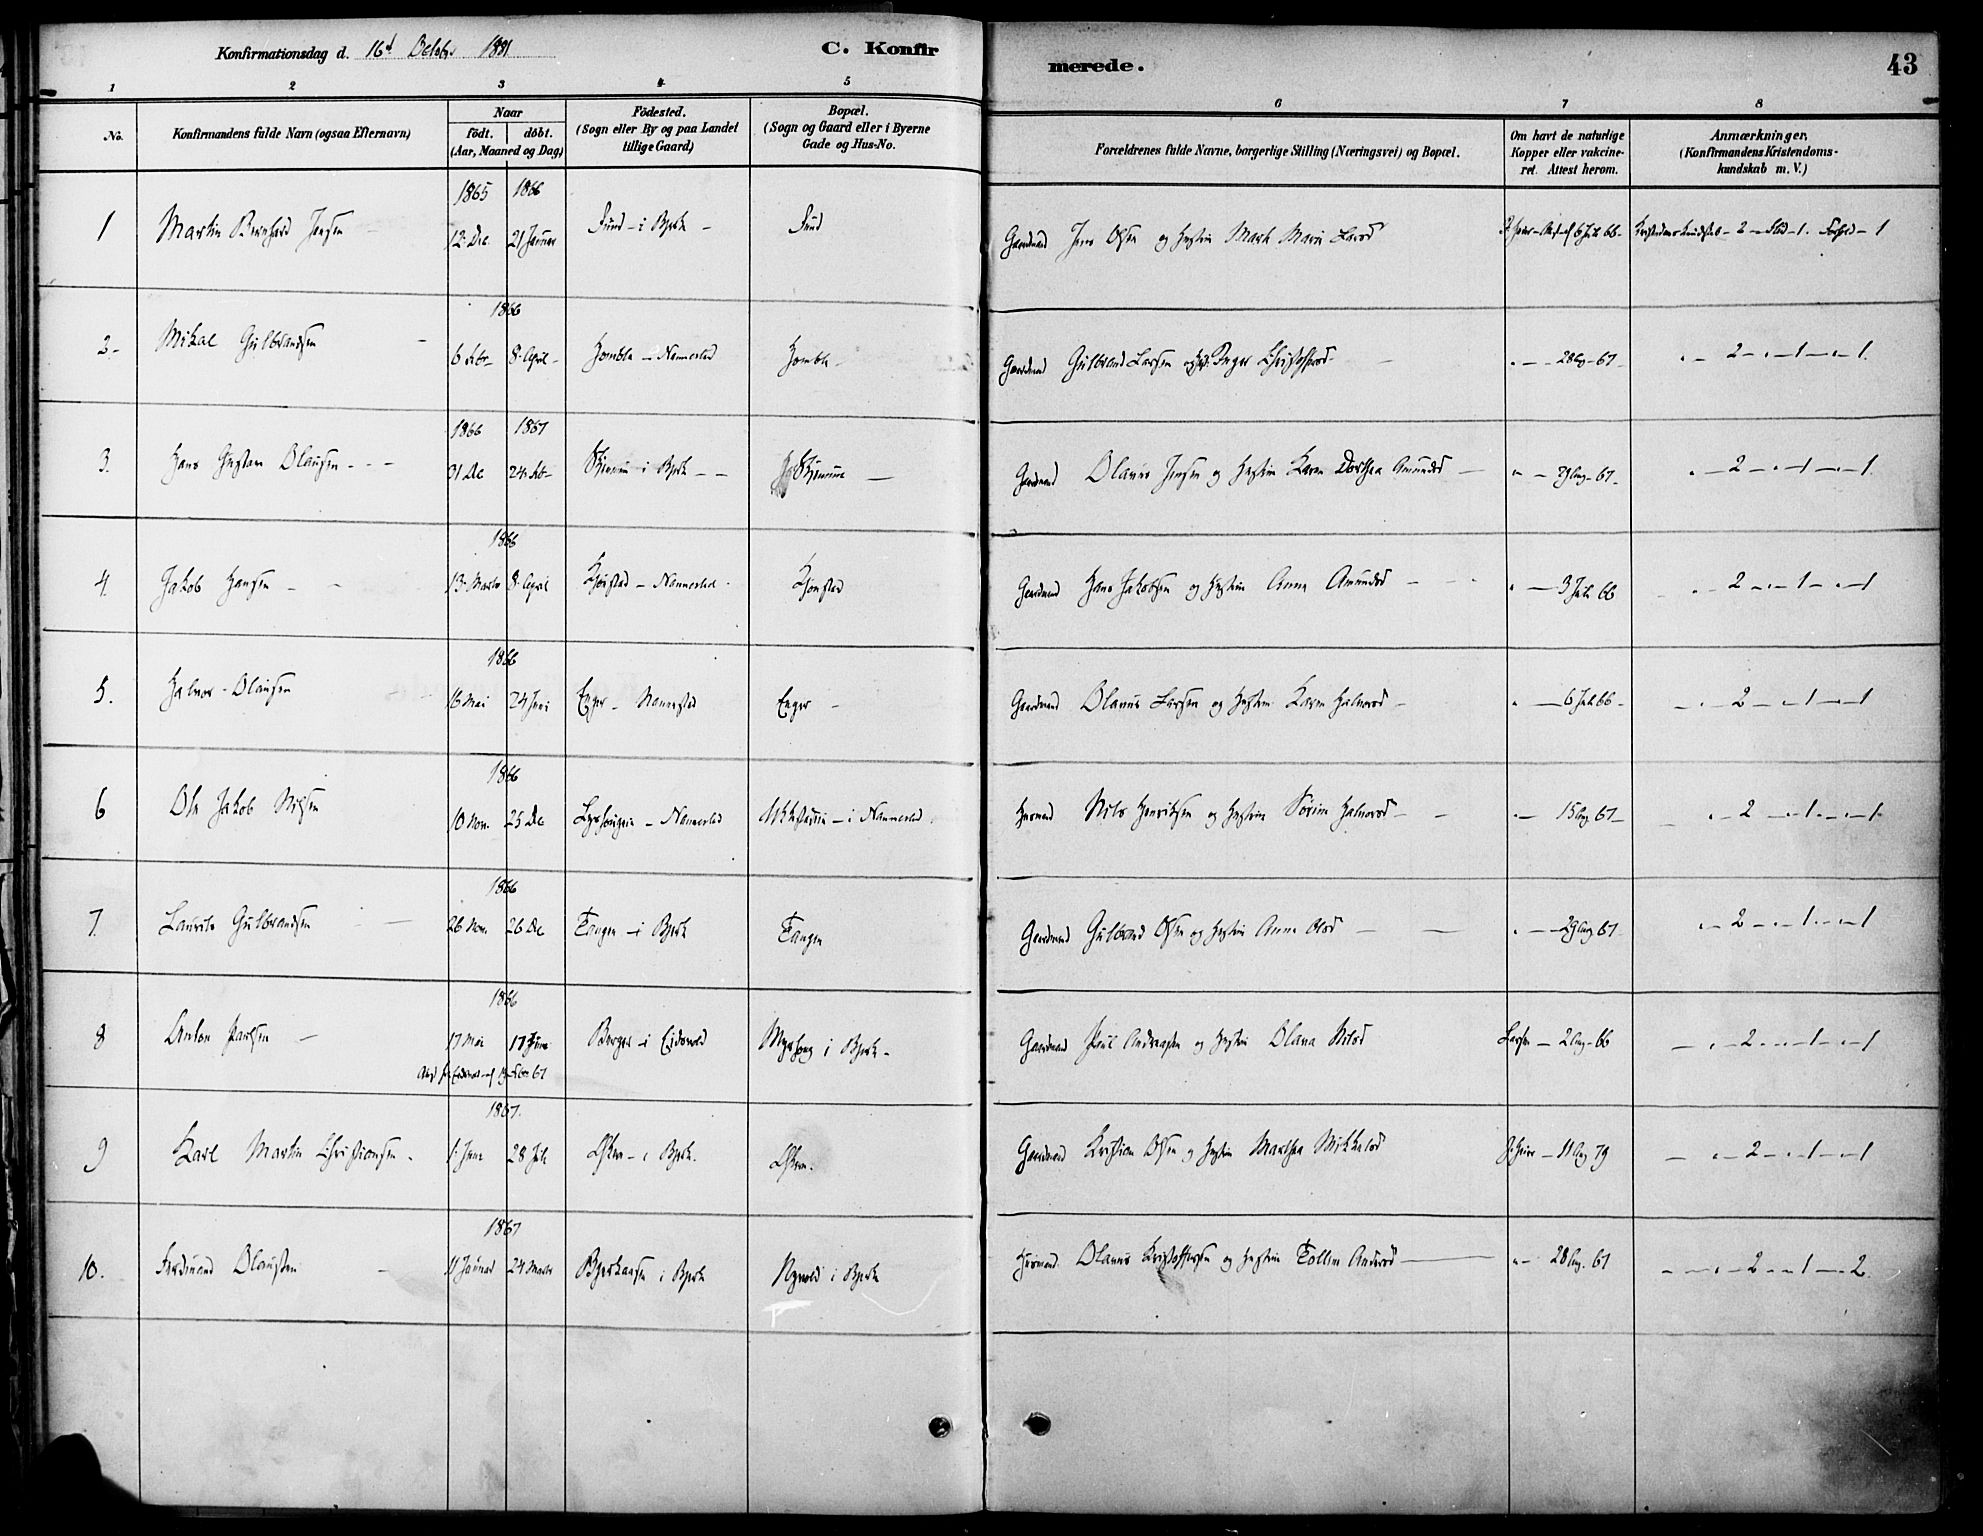 Konfirmationsdag d. 16d October 1881
C. Konfirmerede.
43
1 2 3 4 5 6 7 8
No.
Konfirmandens fulde Navn (ogsaa Efternavn)
Naar
födt. döbt.
(Aar, Maaned og Dag)
Födested.
(Sogn eller By og paa Landet
tillige Gaard)
Bopæl.
(Sogn og Gaard eller i Byerne
Gade og Hus-No.
Forældrenes fulde Navne, borgerlige Stilling (Næringsvei) og Bopæl.
Om havt de naturlige
Kopper eller vakcine-
ret. Attest herom.
Anmærkninger.
(Konfirmandens Kristendoms-
kundskab m. V.)
1865 1866
1 Martin Bernhard Jensen 12 Dec. 21 Januar Sund - i Bjerke - Sund Gaardmand Jens Olsen og Hustru Marie Larsd 2 - Flid - 1. Forhold - 1
1866
2 - Mikal Gulbrandsen 6 Febr 8 April - Homble - Nannestad Homble - Gaardmand Gulbrand Larsen Inger Christoffersd - 28 Aug - 67 - 2 - 1 - 1.
1866 1867
3. Hans Gustav Olausen - - - 31 Dec 24 Febr - i Bjerke - - Gaardmand Olaus Jensen og Hustru Karen Dorthea Amundsd - 29 Aug - 67 - 2 - 1 - 1.
1866
4. Jakob Hansen - 13 Marts 8 April Kjönstad - Nannestad - Kjönstad Gaardmand Hans Jakobsen og Hustru Anne Amundsd - - 3 Juli 66 - 2 - 1 - 1
1866
5. Halvor Olausen 16 Mai 24 Juni Enger - Nannestad Enger - Gaardmand Olaus Larsen og Hustru Karen Halvorsd - 6 Juli 66 - 2 - 1 - 1
1866
6 Ole Jakob Nilsen 10 Nov. 25 Dec - Nannestad - i Nannestad. Husmand Nils Henriksen og Hustru Sörine Halvorsd - 15 Aug 67 - 2 - 1 - 1
1866
7. Laurits Gulbrandsen 26 Nov. 26 Dec Tangen - i Bjerke Tangen Gaardmand Gulbrand Olsen og Hustru Anne Olsd - 29 Aug 67 - 2 - 1 - 1
1866
8 Anton Paulsen - 17 Mai 17 Juni Berger - i Eidsvold i Bjerke - Gaardmand Paul Andreasen og Hustru Olana Nilsd Larsen - 2 Aug - 66 - 2 - 1 - 1
1867.
9 Karl Martin Christiansen. 1 Juni 28 Juli i Bjerke. Gaardmand Kristian Olsen og Hustru Marthea Mikkelsd - 11 Aug 79 - 2 - 1 - 1
1867
10. Ferdinand Olausen 11 Januar 24 Marts i Bjerke i Bjerke Husmand Olaus Kristoffersen og Hustru Andersd - 28 Aug. 67 - 2 - 1 - 2.